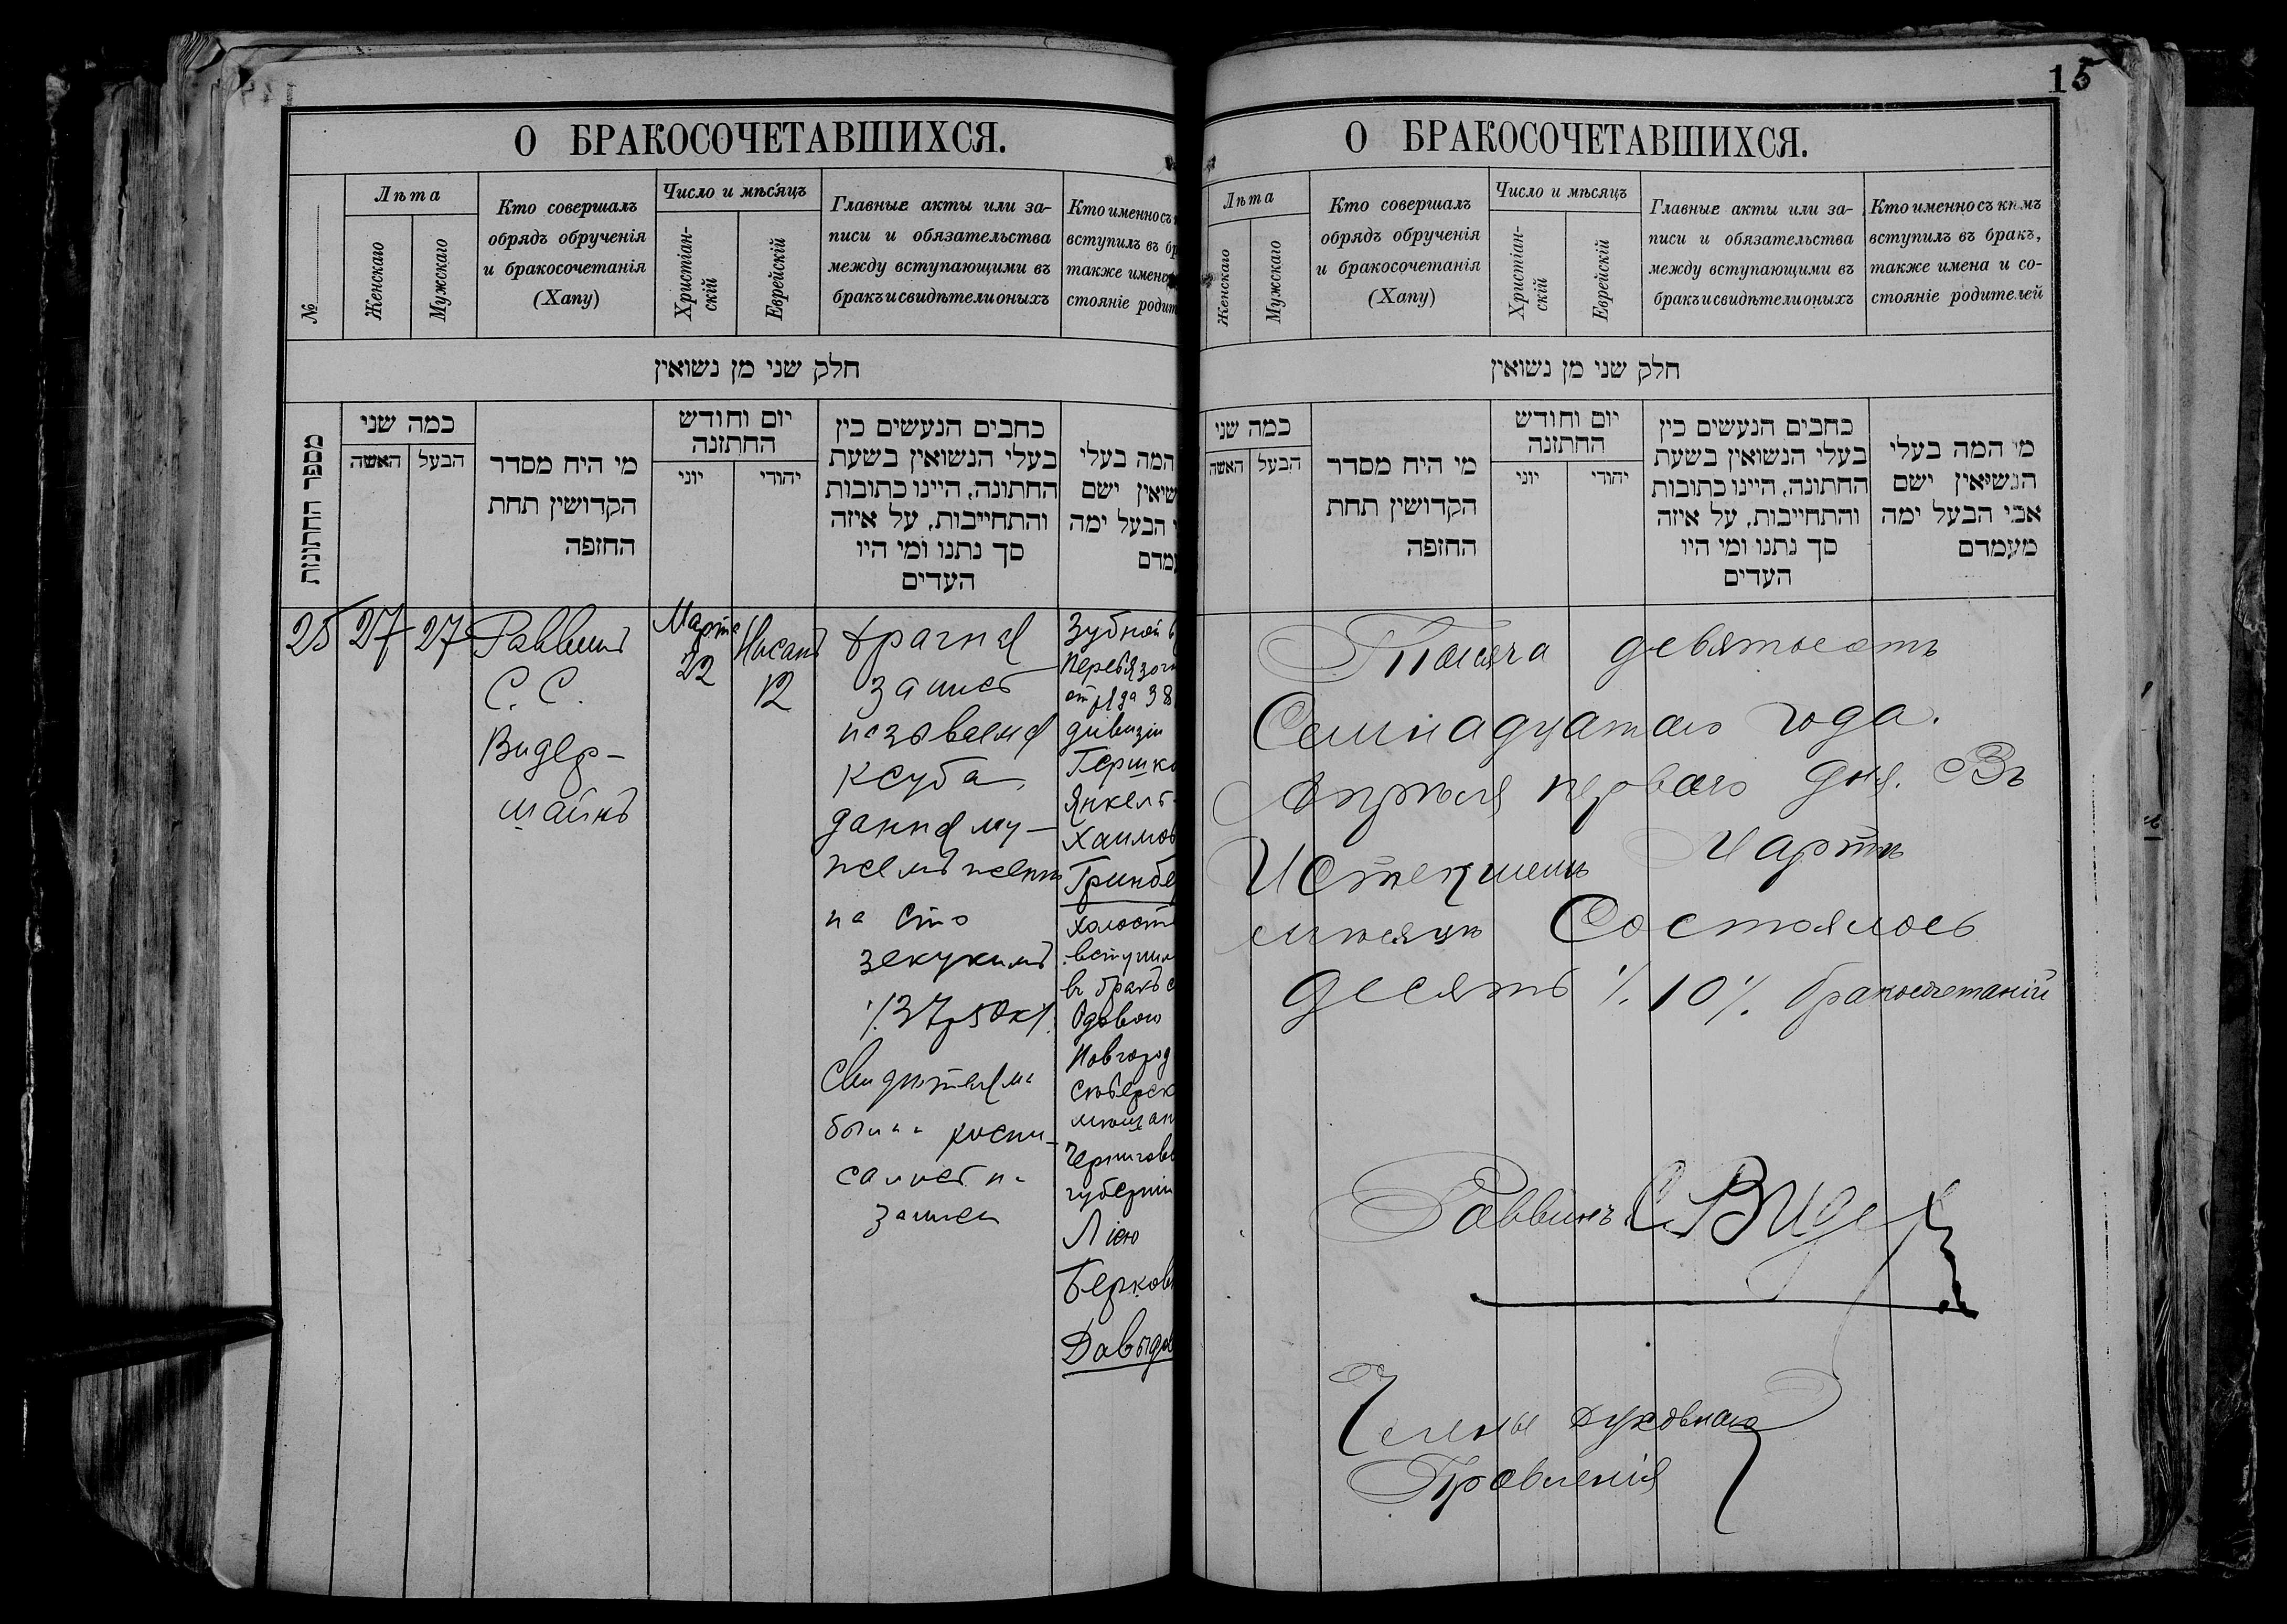 15
О БРАКОСОЧЕТАВШИХСЯ.
№
Лѣта
Женскаго
Мужскаго
Кто совершалъ
обрядъ обрученія
и бракосочетанія
(Хапу)
Число и мѣсяцъ
Христіан-
скій
Еврейскій
Главные акты или за-
писи и обязательства
между вступающими въ
бракъ и свидѣтели оныхъ
Кто именно съ
вступилъ въ бр
также имен
стояніе родит
חלק שני מן נשואין
מספר החתונות
כמה שני
האשה
הבעל
מי היח מסדר
הקדושין תחת
החופה
יום וחודש
החתונה
יוני
יהודי
כחבים הנעשים כין
בעלי הנשואין בשעת
החתונה, היינו כתובות
והתחייבות, על איזה
סך נתנו ומי היו
העדים
המה בעלי
שיאין ישם
הבעל ימה
עמדם
25
27
27
Раввинъ
С. С.
Видер-
шайнъ
Марта
22
Нисанъ
12
брачная
запись
называемая
ксуба
данная му-
жемъ женѣ
на сто
зекукимъ
./.37р50к./.
Свидѣтелями
были роспи-
сались на
записи
Зубной в
перевязоч
отряда 38
дивизіи
Гершко
Янкель-
Хаимов
Гринбе
холост
вступил
въ бракъ с
вдовою
Новгород
Сѣверск
мѣщан
Чернигов
губерніи
Ліею
Берков
Давыдов
О БРАКОСОЧЕТАВШИХСЯ.
Лѣта
Женскаго
Мужскаго
Кто совершалъ
обрядъ обрученія
и бракосочетанія
(Хапу)
Число и мѣсяцъ
Христіан-
скій
Еврейскій
Главные акты или за-
писи и обязательства
между вступающими въ
бракъ и свидѣтели оныхъ
Кто именно съ кѣмъ
вступилъ въ бракъ,
также имена и со-
стояніе родителей
חלק שני מן נשואין
כמה שני
האשה
הבעל
מי היח מסדר
הקדושין תחת
החופה
יום וחודש
החתונה
יוני
יהודי
כחבים הנעשים כין
בעלי הנשואין בשעת
החתונה, היינו כתובות
והתחייבות, על איזה
סך נתנו ומי היו
העדים
מי המה בעלי
הנשיאין ישם
אבי הבעל ימה
מעמדם
Тысяча девятьсотъ
Семнадцатаго года.
Апрѣля перваго дня. Въ
Истекшемъ Мартѣ
мѣсяцѣ Состоялось
десять ./. 10 ./. бракосочетаній
Раввинъ С Видер
Члены духовнаго
Правленія